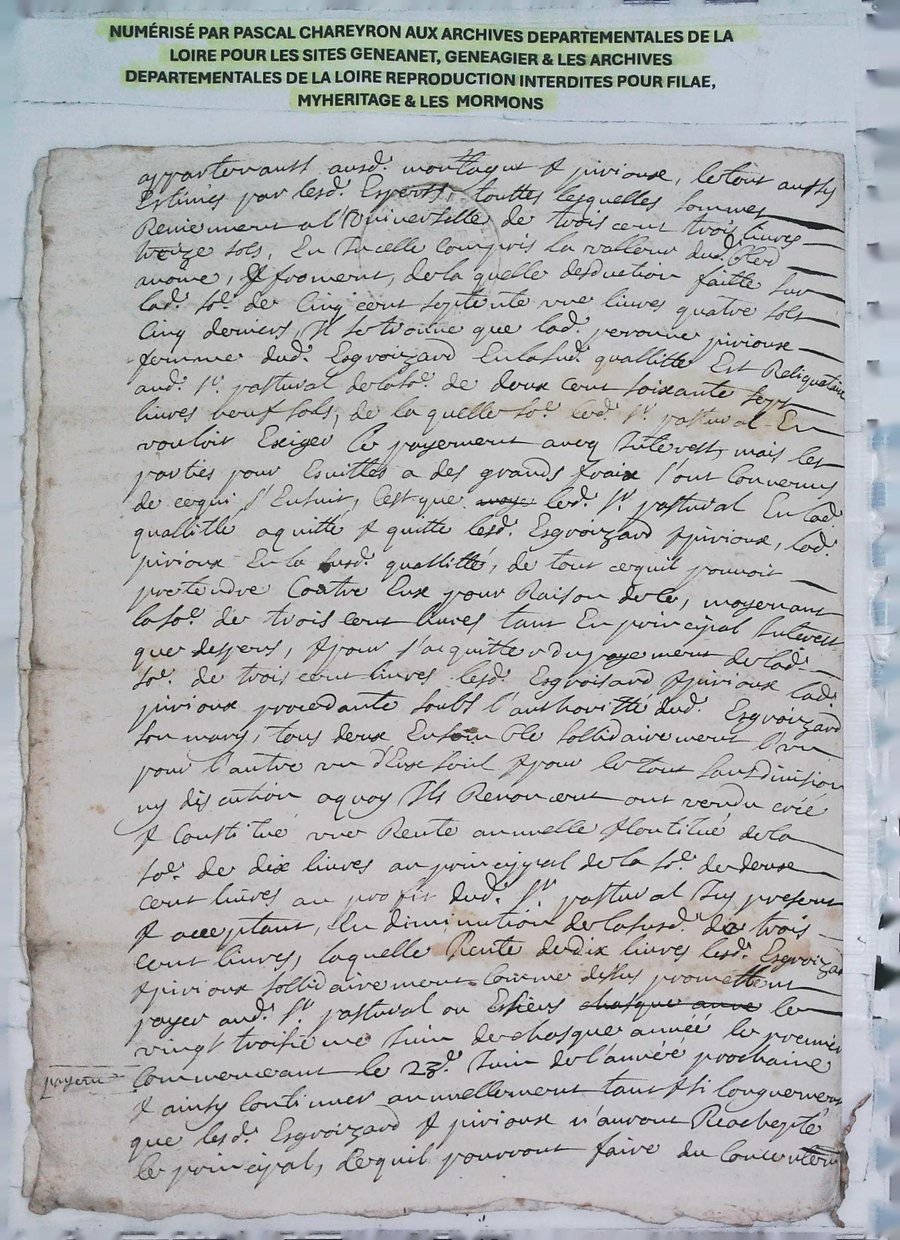 NUMÉRISÉ PAR PASCAL CHAREYRON AUX ARCHIVES DEPARTEMENTALES DE LA
LOIRE POUR LES SITES GENEANET, GENEAGIER & LES ARCHIVES
DEPARTEMENTALES DE LA LOIRE REPRODUCTION INTERDITES POUR FILAE,
MYHERITAGE & LES MORMONS
appartenants ausd. montagut & pirioux, le tout aussy
Estimés par lesd. Experts, touttes lesquelles sommes
Reviennent a l'Universelle de trois cent trois livres
treize sols, En Icelle Compris la valleur dud. bled
avoine, & froment, de la quelle desduction faitte sur
lad. so.e de Cinq cent septente une livres quatre sols
Cinq deniers, Il se trouve que lad. pirioux
femme dud. Esgroizard En lasusd. quallitté Est Reliquataire
aud. Sr. pastural de la so.e de deux cent soixante sept
livres neuf sols, de la quelle so.e led. Sr. pastural En
vouloit Exiger le payement avec Interest, mais les
parties pour Esvitter a des grands fraix sont Convenus
de cequi s'Ensuit, Cest que led. Sr. pastural En lad.
quallitté aquitte & quitte lesd. Esgroizard & pirioux, lad.
pirioux En la susd. quallitté, de tout cequil pouvoit
pretendre Contre Eux pour Raison de ce, moyenant
la so.e de trois cent livres tant En principal Interest
que despens, & pour s'acquitter du payement de lad.
so.e de trois cent livres lesd. Esgroisard & pirioux lad.
pirioux procedante soubs l'authoritté dud. Esgroizard
son mary, tous deux Ensemble sollidairement l'un
pour l'autre un d'Eux seul & pour le tout sans division
ny discution aquoy Ils Renoncent ont vendu créé
& Constitué une Rente annuelle & de la
so.e de dix livres au principal de la so.e de deux
cent livres au profit dud. Sr. pastural Icy present
& acceptant, En diminution de lasusd. de trois
cent livres, laquelle Rente de dix livres lesd. Esgroizard
& pirioux sollidairement Comme dessus promettent
payer aud. Sr. pastural ou Esheirs chasque année le
vingt troisieme Juin de chasque année le premier
payem.
Commenceant le 23e. Juin de l'année prochaine
& ainsy Continuer annuellement tant & si longuement
que lesd. Esgroizard & pirioux n'auront Reachepté
le principal, Lequil pourront faire du Consentem